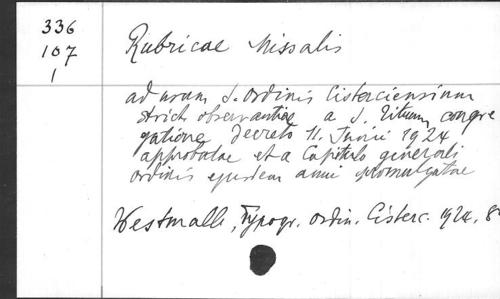 336
107
1
Rubricae Missalis
ad usum S. Ordinis Cisterciensium
strict. observantiae a S. Rituum congre
gatione decreto 11. Junii 1924
approbatae et a Capitulo generali
ordinis ejusdem anni promulgatae
Westmalle, Typogr. Ordin. Cisterc. 1924. 8°